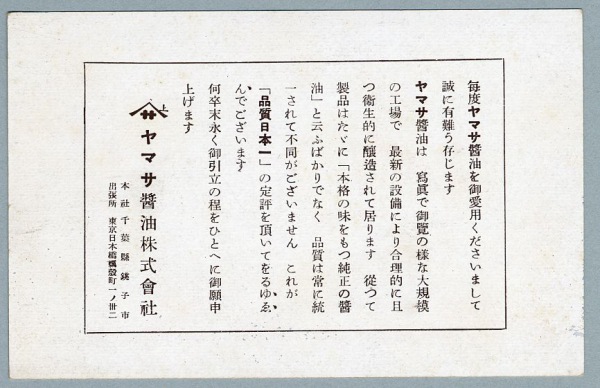 毎度ヤマサ醬油を御愛用くださいまして
誠に有難う存じます
ヤマサ醬油は　寫眞で御覽の樣な大規模
の工場で　最新の設備により合理的に且
つ衞生的に釀造されて居ります　從つて
製品はたゞに「本格の味をもつ純正の醬
油」と云ふばかりでなく　品質は常に統
一されて不同がございません　これが
「品質日本一」の定評を頂いてをるゆゑ
んでございます
何卒末永く御引立の程をひとへに御願申
上げます
上
サ
ヤマサ醬油株式會社
本社　千葉縣銚子市
出張所　東京日本橋蠣殼町一ノ卅二